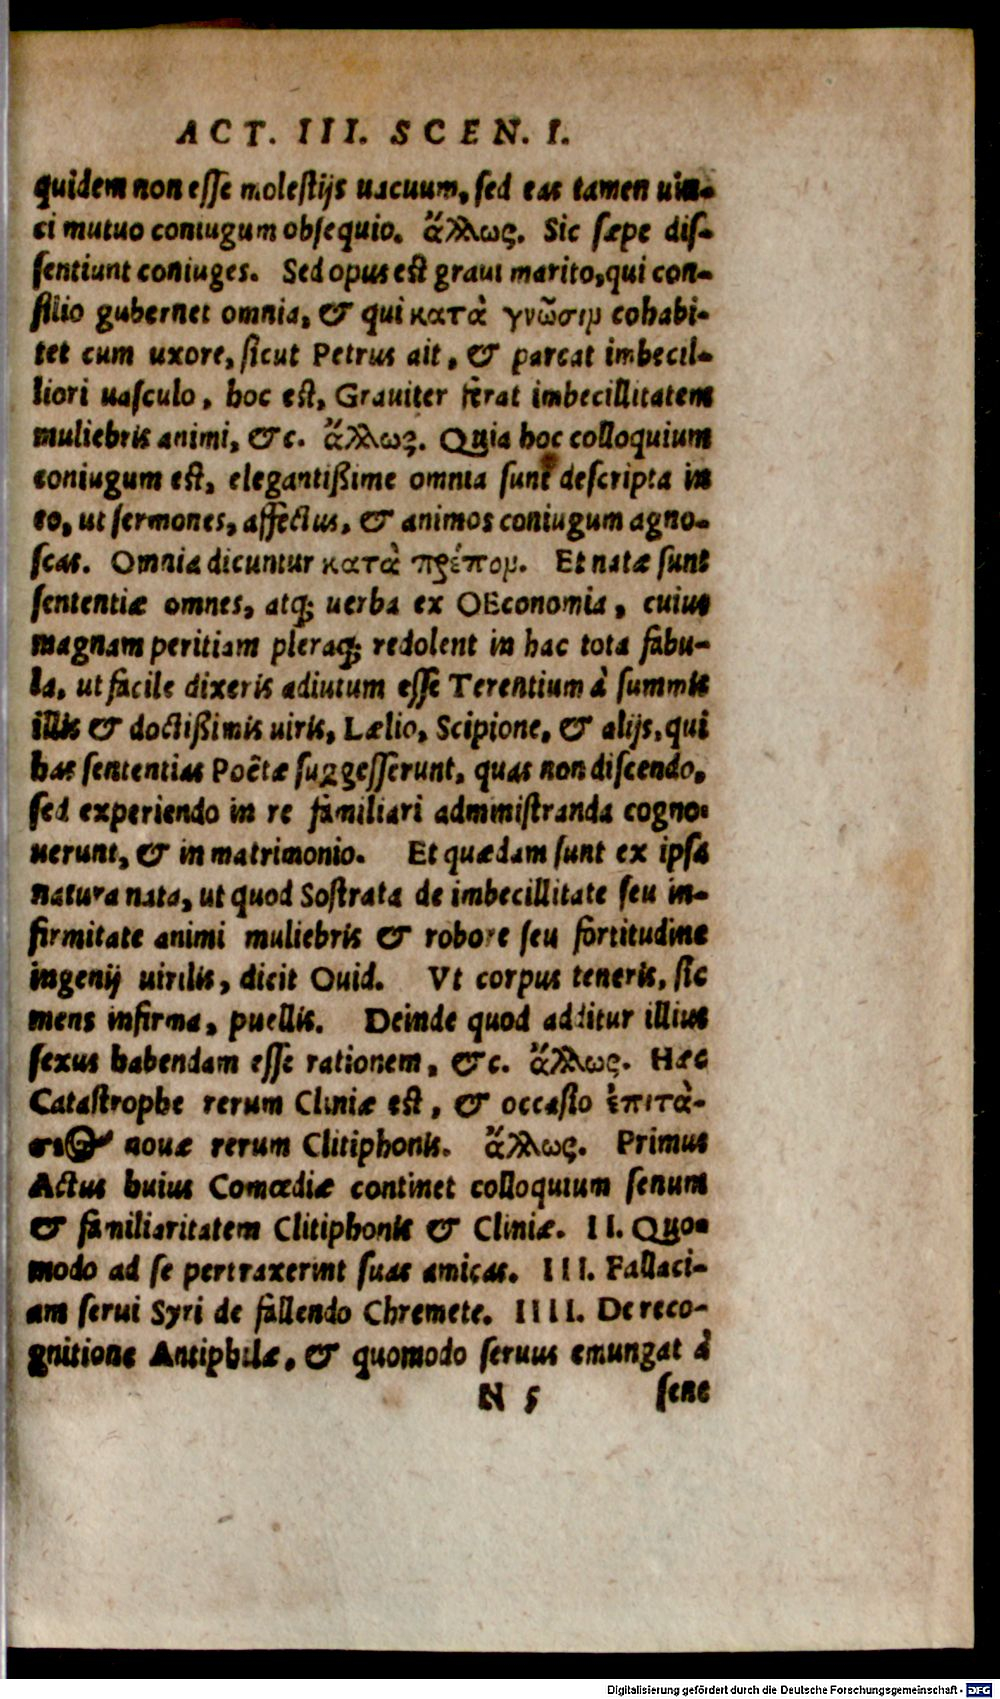 ACT. III. SCEN. I.
quidem non eſſe moleſtijs uacuum, ſed eas tamen uin-
ci mutuo coniugum obſequio. ἄλλως. Sic ſæpe diſ-
ſentiunt coniuges. Sed opus eſt graui marito, qui con-
ſilio gubernet omnia, & qui κατὰ γνῶσιμ cohabi-
tet cum uxore, ſicut Petrus ait, & parcat imbecil-
liori uaſculo, hoc eſt, Grauiter ferat imbecillitatem
muliebris animi, &c. ἄλλως. Quia hoc colloquium
coniugum eſt, elegantißime omnia ſunt deſcripta in
eo, ut ſermones, affectus, & animos coniugum agno-
ſcas. Omnia dicuntur κατὰ πρέπομ. Et natæ ſunt
ſententiæ omnes, atq; uerba ex OEconomia, cuius
magnam peritiam pleraq; redolent in hac tota fabu-
la, ut facile dixeris adiutum eſſe Terentium à ſummis
illis & doctißimis uiris, Lælio, Scipione, & alijs, qui
has ſententias Poëtæ ſuggeſſerunt, quas non diſcendo,
ſed experiendo in re familiari adminiſtranda cogno-
uerunt, & in matrimonio. Et quædam ſunt ex ipſa
natura nata, ut quod Soſtrata de imbecillitate ſeu in-
firmitate animi muliebris & robore ſeu fortitudine
ingenij uirilis, dicit Ouid. Vt corpus teneris, ſic
mens infirma, puellis. Deinde quod additur illius
ſexus habendam eſſe rationem, &c. ἄλλως. Hæc
Cataſtrophe rerum Cliniæ eſt, & occaſio ἐπιτὰ-
σιος nouæ rerum Clitiphonis. ἄλλως. Primus
Actus huius Comœdiæ continet colloquium ſenum
& familiaritatem Clitiphonis & Cliniæ. II. Quo-
modo ad ſe pertraxerint ſuas amicas. III. Fallaci-
am ſerui Syri de fallendo Chremete. IIII. De reco-
gnitione Antiphilæ, & quomodo ſeruus emungat à
N 5 ſene
Digitalisierung gefördert durch die Deutsche Forschungsgemeinschaft - DFG